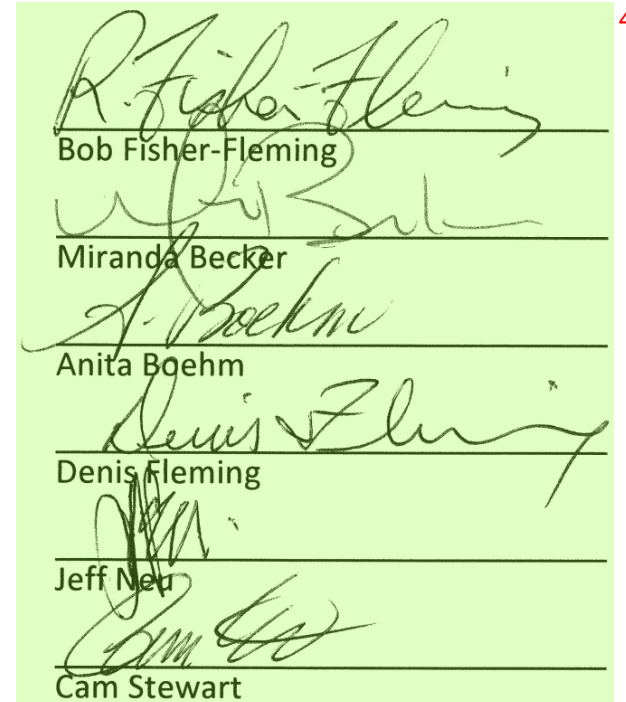 R. Fisher-Fleming
Bob Fisher-Fleming
Miranda Becker
A. Boehm
Anita Boehm
Denis Fleming
Denis Fleming
Jeff Neu
Cam Stewart
4